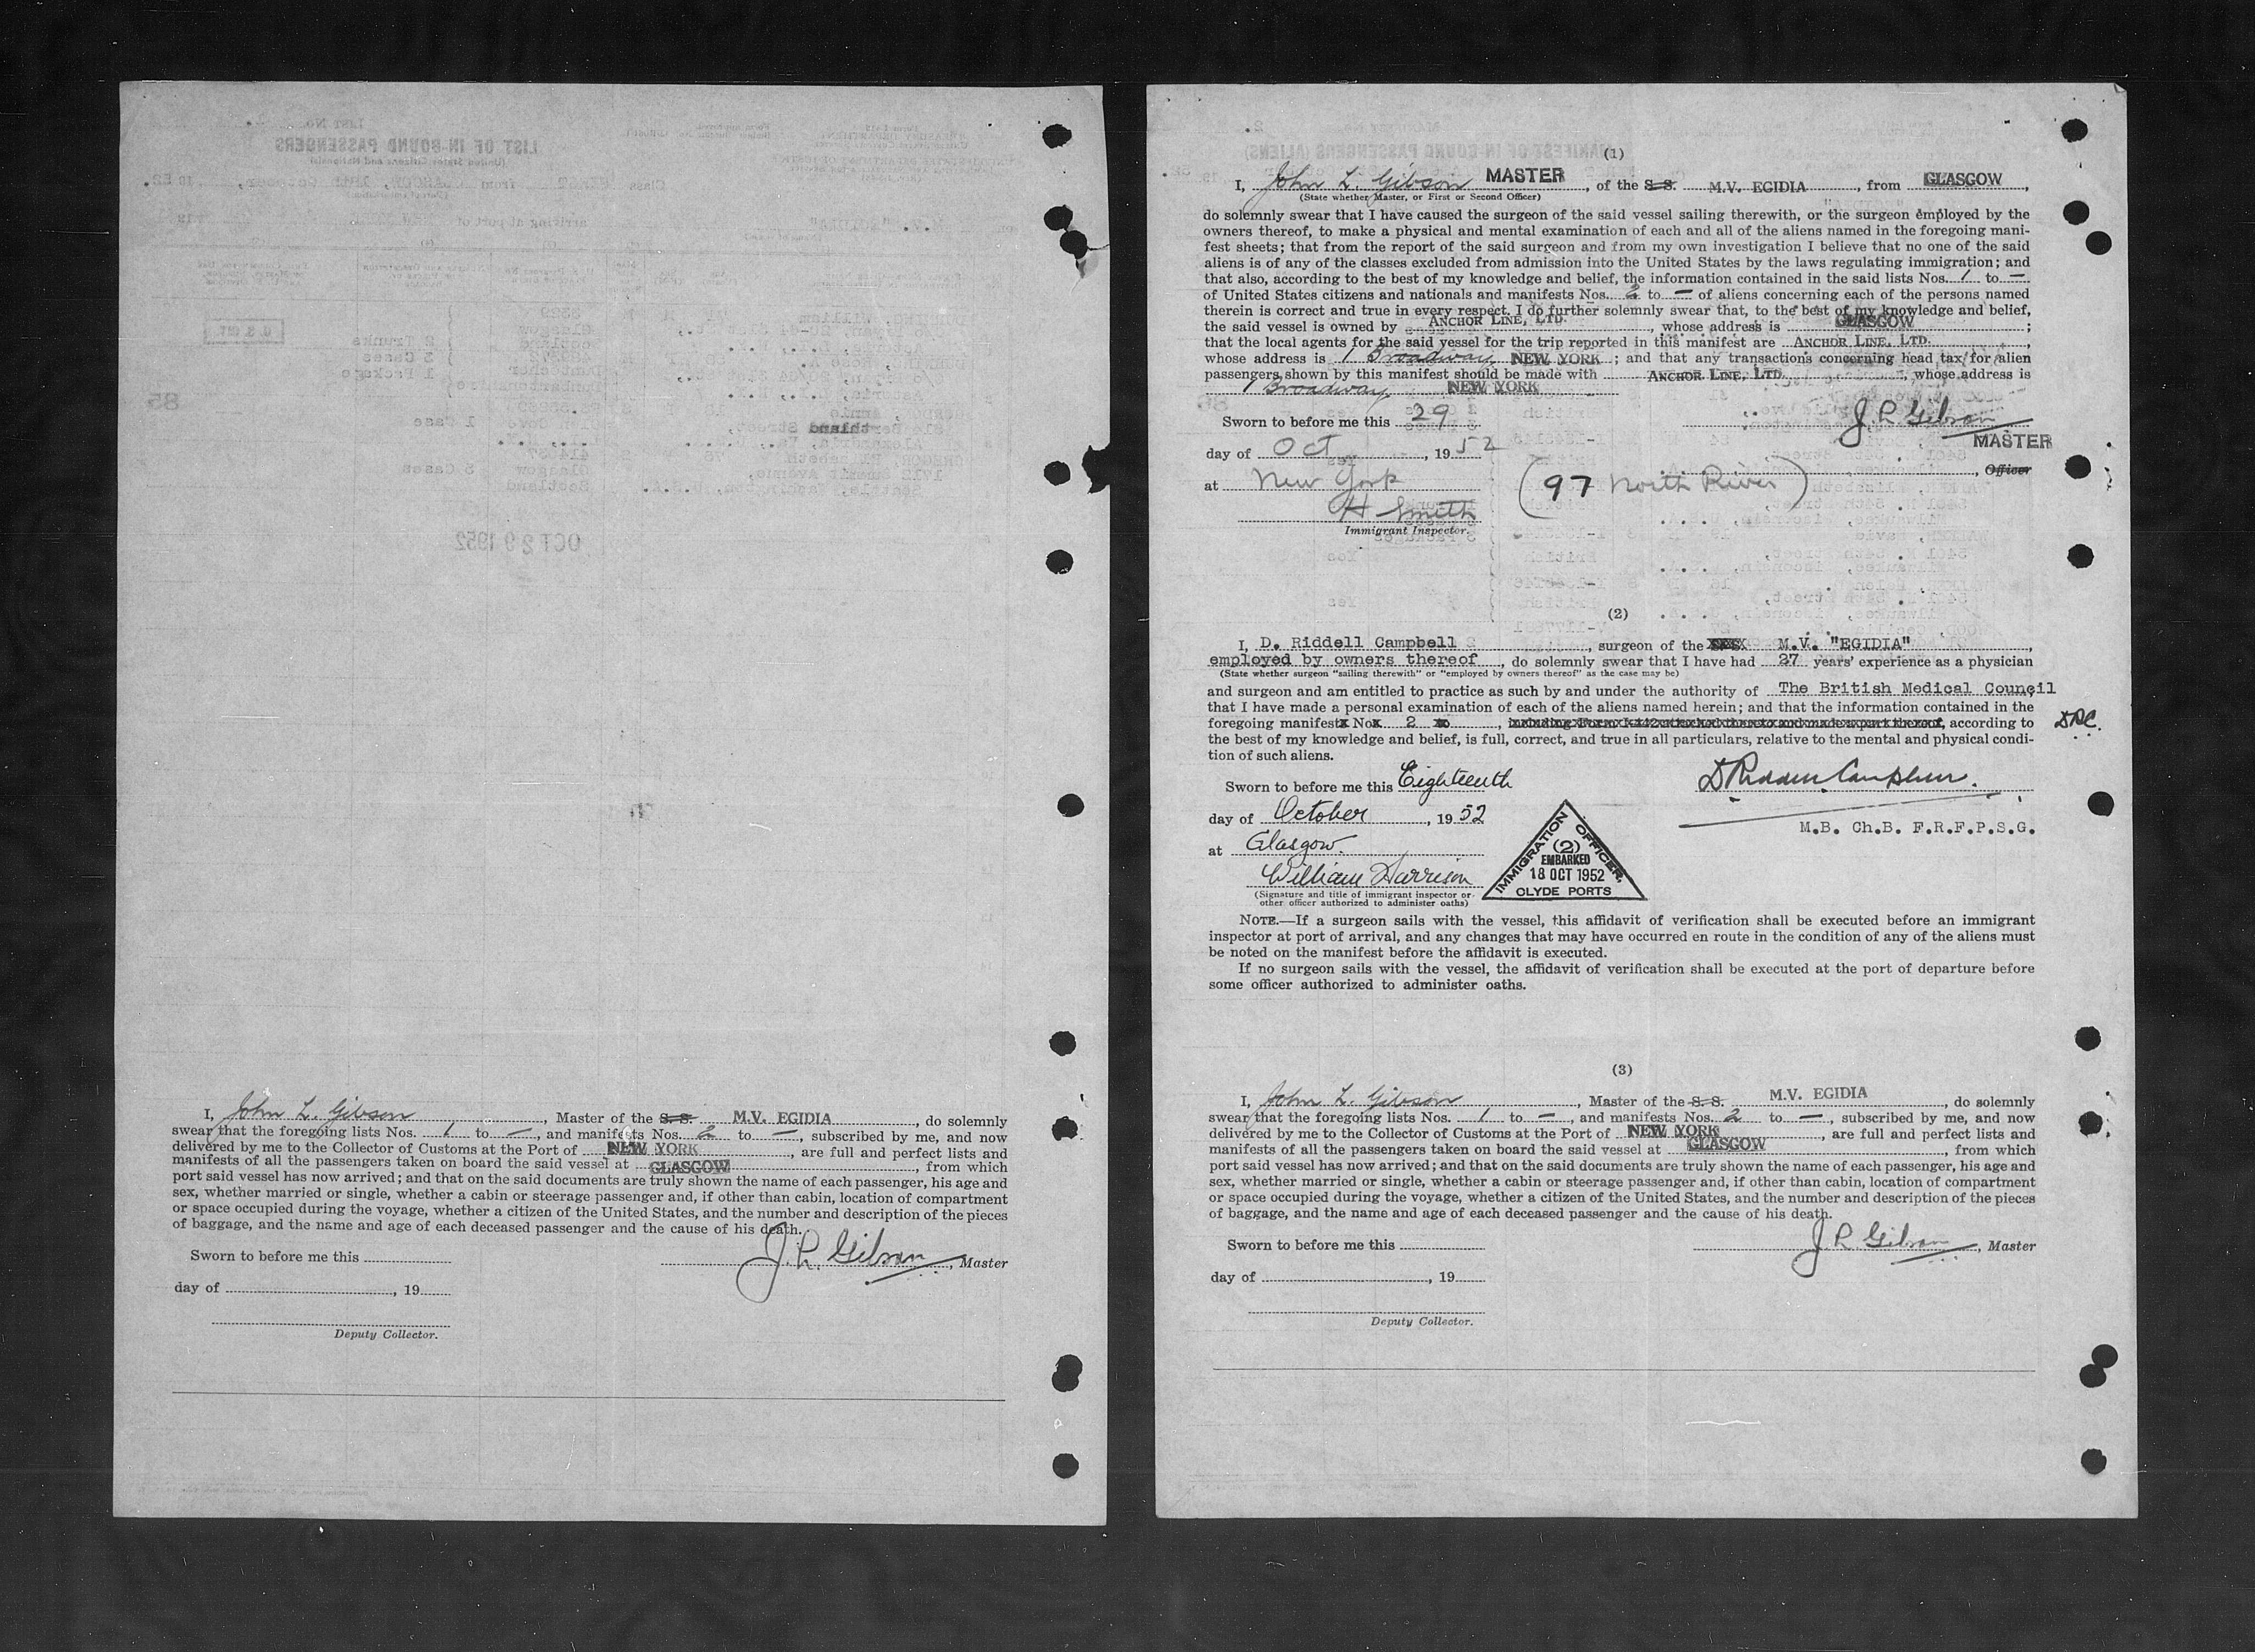 I, John L. Gibson, Master of the S. S. M.V. EGIDIA, do solemnly
swear that the foregoing lists Nos. 1 to —, and manifests Nos. 2 to —, subscribed by me, and now
delivered by me to the Collector of Customs at the Port of NEW YORK, are full and perfect lists and
manifests of all the passengers taken on board the said vessel at GLASGOW, from which
port said vessel has now arrived; and that on the said documents are truly shown the name of each passenger, his age and
sex, whether married or single, whether a cabin or steerage passenger and, if other than cabin, location of compartment
or space occupied during the voyage, whether a citizen of the United States, and the number and description of the pieces
of baggage, and the name and age of each deceased passenger and the cause of his death.
Sworn to before me this
J. L. Gibson, Master
day of , 19
Deputy Collector.
(1)
I, John L. Gibson MASTER, of the S. S. M.V. EGIDIA, from GLASGOW,
(State whether Master, or First or Second Officer)
do solemnly swear that I have caused the surgeon of the said vessel sailing therewith, or the surgeon employed by the
owners thereof, to make a physical and mental examination of each and all of the aliens named in the foregoing mani-
fest sheets; that from the report of the said surgeon and from my own investigation I believe that no one of the said
aliens is of any of the classes excluded from admission into the United States by the laws regulating immigration; and
that also, according to the best of my knowledge and belief, the information contained in the said lists Nos. 1 to —
of United States citizens and nationals and manifests Nos. 2 to — of aliens concerning each of the persons named
therein is correct and true in every respect. I do further solemnly swear that, to the best of my knowledge and belief,
the said vessel is owned by ANCHOR LINE, LTD., whose address is GLASGOW;
that the local agents for the said vessel for the trip reported in this manifest are ANCHOR LINE, LTD.,
whose address is 1 Broadway NEW YORK; and that any transactions concerning head tax for alien
passengers shown by this manifest should be made with ANCHOR LINE, LTD., whose address is
1 Broadway, NEW YORK
Sworn to before me this 29
J. L. Gibson
MASTER
day of Oct, 19 52
, Officer
at New York (97 North River)
H Smith
Immigrant Inspector.
(2)
I, D. Riddell Campbell, surgeon of the M.V. "EGIDIA",
employed by owners thereof, do solemnly swear that I have had 27 years' experience as a physician
(State whether surgeon "sailing therewith" or "employed by owners thereof" as the case may be)
and surgeon and am entitled to practice as such by and under the authority of The British Medical Council
that I have made a personal examination of each of the aliens named herein; and that the information contained in the
foregoing manifest No 2 , according to DRC.
the best of my knowledge and belief, is full, correct, and true in all particulars, relative to the mental and physical condi-
tion of such aliens.
Sworn to before me this Eighteenth
D Riddell Campbell.
day of October, 19 52
M.B. Ch.B. F.R.F.P.S.G.
at Glasgow.
William Harrison
(Signature and title of immigrant inspector or
other officer authorized to administer oaths)
IMMIGRATION OFFICER.
(2)
EMBARKED
18 OCT 1952
CLYDE PORTS
NOTE.—If a surgeon sails with the vessel, this affidavit of verification shall be executed before an immigrant
inspector at port of arrival, and any changes that may have occurred en route in the condition of any of the aliens must
be noted on the manifest before the affidavit is executed.
If no surgeon sails with the vessel, the affidavit of verification shall be executed at the port of departure before
some officer authorized to administer oaths.
(3)
I, John L. Gibson, Master of the S. S. M.V. EGIDIA, do solemnly
swear that the foregoing lists Nos. 1 to —, and manifests Nos. 2 to —, subscribed by me, and now
delivered by me to the Collector of Customs at the Port of NEW YORK, are full and perfect lists and
manifests of all the passengers taken on board the said vessel at GLASGOW, from which
port said vessel has now arrived; and that on the said documents are truly shown the name of each passenger, his age and
sex, whether married or single, whether a cabin or steerage passenger and, if other than cabin, location of compartment
or space occupied during the voyage, whether a citizen of the United States, and the number and description of the pieces
of baggage, and the name and age of each deceased passenger and the cause of his death.
Sworn to before me this
J. L. Gibson, Master
day of , 19
Deputy Collector.